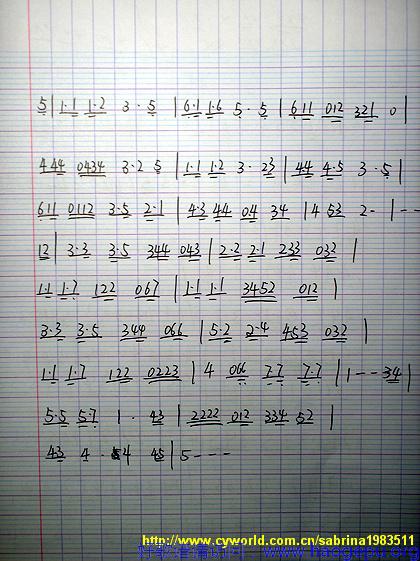 5 | 1·1 1·2 3· 5 | 6·1 1·6 5· 5 | 611 012 321 0
444 0434 3·2 5 | 1·1 1·2 3· 23 | 44 4·5 3· 5 |
611 0112 3·5 2·1 | 4·3 44 04 34 | 4 53 2- | --
12 | 3·3 3·5 344 043 | 2·2 2·1 233 032 |
1·1 1·7 122 067 | 1·1 1·1 3452 012 |
3·3 3·5 344 066 | 5·2 2·4 453 032 |
1·1 1·7 122 0223 | 4 066 7·7 7·7 | 1 -- 34 |
5·5 5·7 1· 43 | 2222 012 334 52 |
43 4· 4 45 | 5 ---
http://www.cyworld.com.cn/sabrina1983511